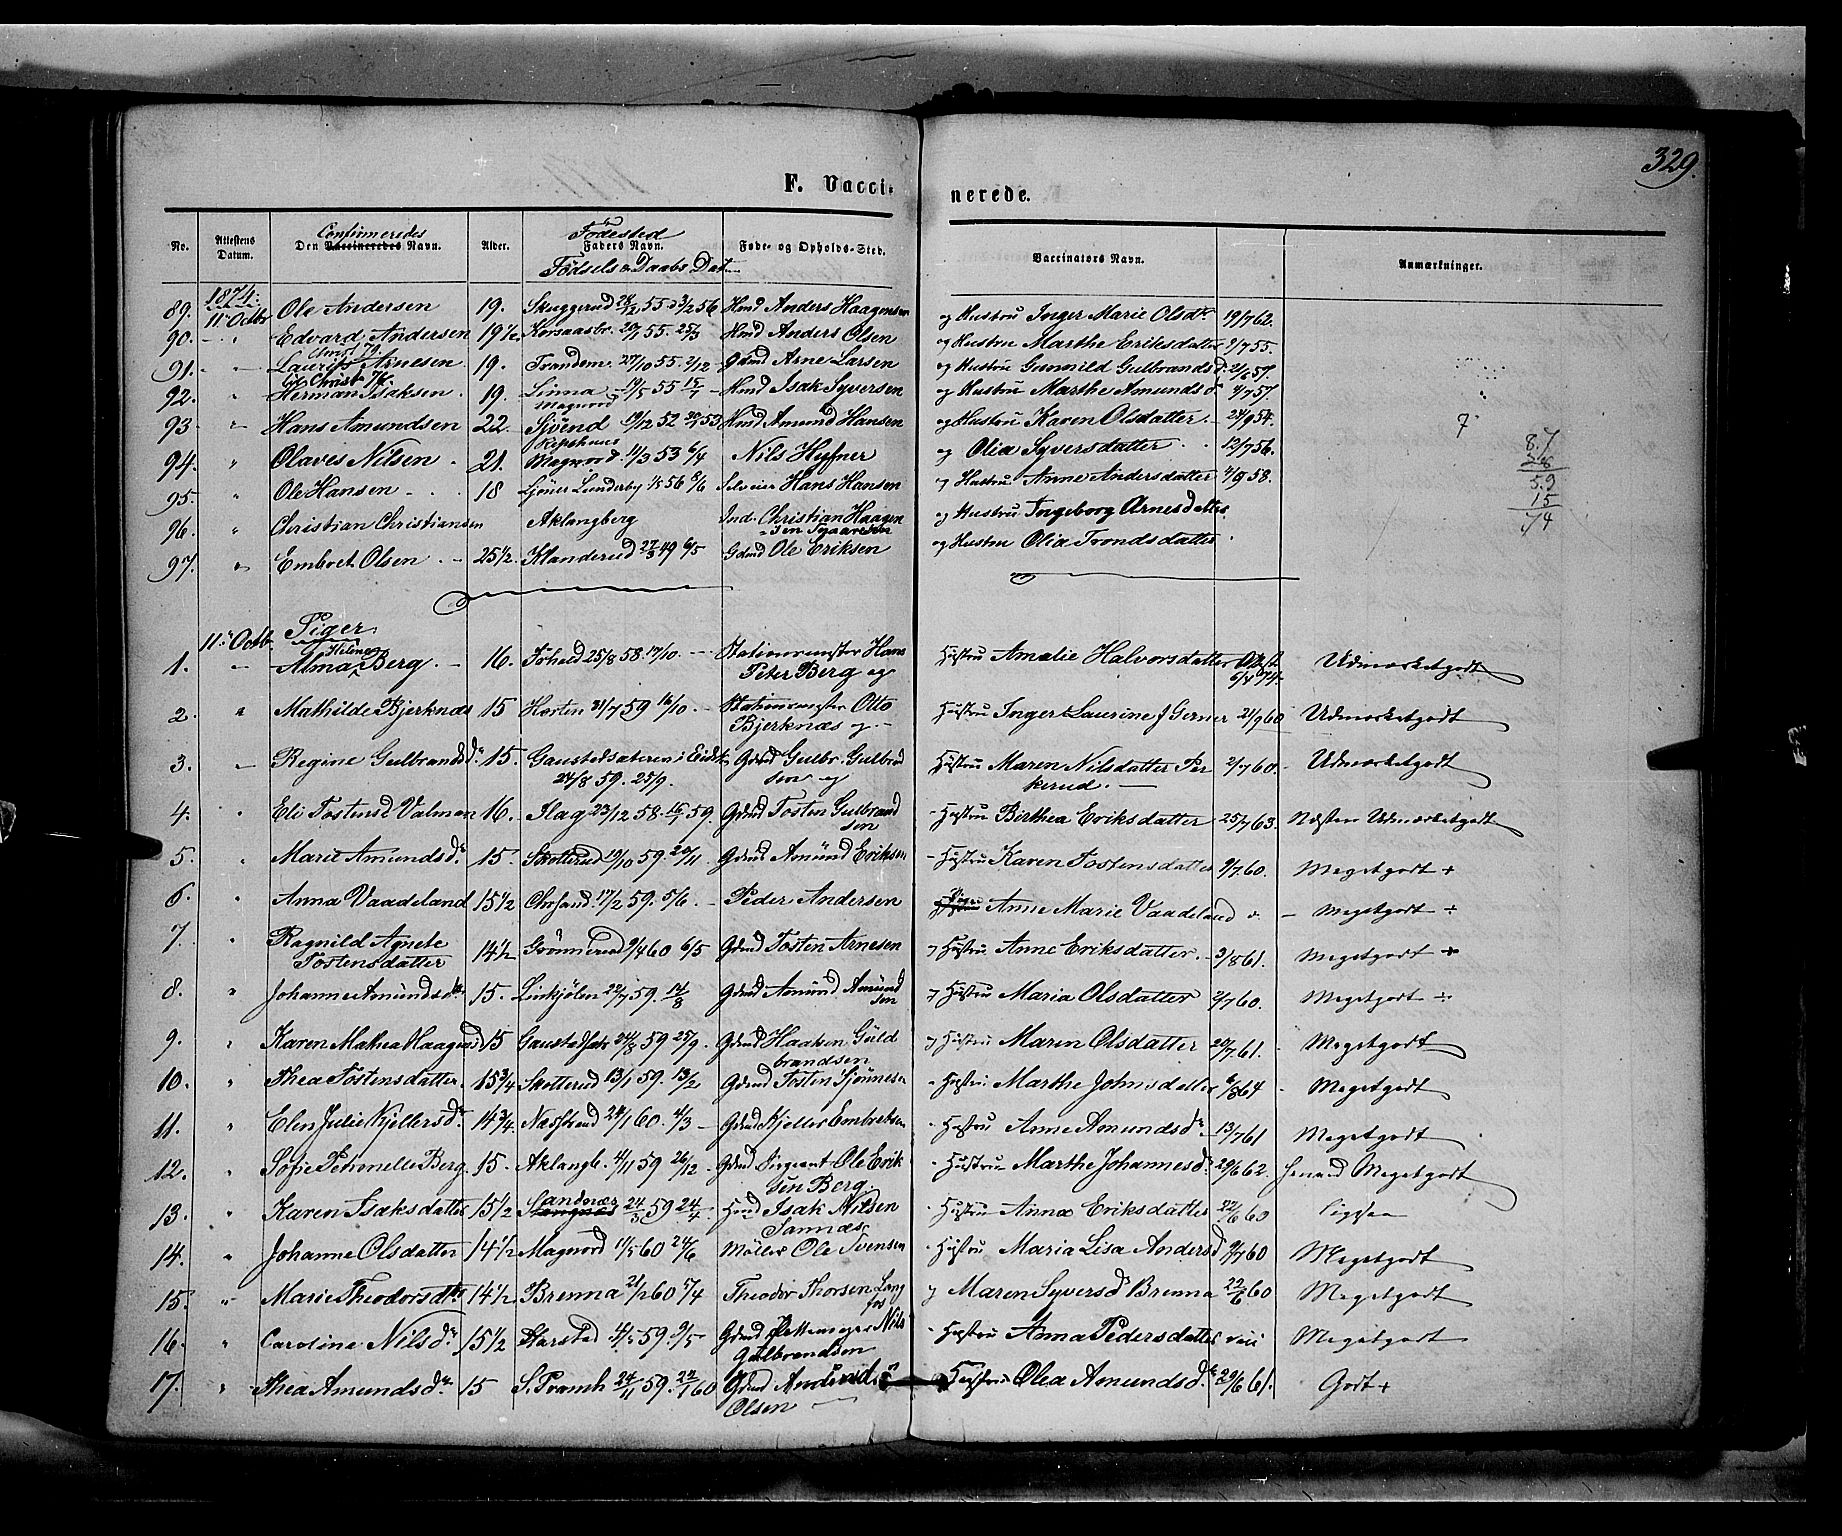 329.
F. Vacci- nerede.
No. Attestens Datum. Den Confirmeredes Vaccineredes Navn. Alder. Födested Faders Navn. Fødsels & Daabs Dat Føde- og Opholds-Sted. Vaccinators Navn. Anmærkninger.
1874:
89. 11 Octbr Ole Andersen 19. Skuggerud 28/12 55 3/2 56 Hmd Anders Haagensen og Hustru Inger Marie Olsdtr. 19/7 62.
90. Edvard Andersen 19½ 55. Hmd Anders Olsen og Hustru Marthe Eriksdatter 9/7 55.
91. Laurits Arnesen 19. Trandem 27/10 55 2/12 Gdmd Arne Larsen og Hustru Gunnild Gulbrandsd. 21/6 57.
92. Herman Isaksen 19. Linna 19/5 55 15/7 Hmd Isak Syversen og Hustru Marthe Amundsd. 4/7 57.
93 Hans Amundsen 22. 19/12 52 53 Hmd Amund Hansen og Hustru Karen Olsdatter 24/9 54. 7
94. Olaves Nilsen 21. Magnord 11/3 53 6/4 Nils Hyfner og Olia Syversdatter 12/7 56.
95. Ole Hansen 18 Lunderby 1/5 56 8/6 Selveier Hans Hansen og Hustru Anne Andersdatter 4/9 58.
8.7
59
15
74
96. Christian Christiansen Aklangberg Ind. Christian Haagen og Hustru Ingeborg Arnesdatter
97. Embret Olsen 25½ Klanderud 27/3 49 6/5 Gdmd Ole Eriksen og Hustru Olia Trondsdatter
Piger
11 Octb.
1. Alma Helene Berg 16. 25/8 58. 17/10 Stationsmester Hans Peter Berg og Hustru Amalie Halvorsdatter Udmærketgodt
2. Mathilde Bjerknæs 15 Horten 31/7 59 16/10 Stationsmester Otto Bjerknæs og Hustru Inger Laurine f Gerner 21/9 60 Udmærketgodt
3. Regine Gulbrandsd. 15. Gaustadsæteren i Eidsk 24/8 59. 25/9. Gdmd Gulbr. Gulbrandsen og Hustru Maren Nilsdatter Perkerud. 2/7 60. Udmærketgodt
4. Eli Tostensd Valmen 16. Flag 23/12 58. 16/1 59. Gdmd Tosten Gulbrandsen Hustru Birthea Eriksdatter 25/7 63. Næsten Udmærketgodt
5. Marie Amundsd. 15. Skotterud 19/10 59. 20/11 Gdmd Amund Eriksen Hustru Karen Tostensdatter 9/7 60. Megetgodt +
6. Anna Vaadeland 15½ 17/2 59. 5/6. Peder Andersen Anne Marie Vaadeland Megetgodt ÷
7. Ragnild Agnete Tostensdatter 14½ Grönnerud 9/4 60 6/5 Gdmd Tosten Arnesen Hustru Anne Eriksdatter 3/8 61. Megetgodt +
8. Johanne Amundsdtr. 15. Linkjölen 22/7 59. 14/8 Gdmd Amund Amundsen Hustru Maria Olsdatter 2/7 60. Megetgodt ÷
9. Karen Mathea Haagensd 15 24/8 59 25/9. Gdmd Haaken Guldbrandsen Hustru Maren Olsdatter 20/7 61. Megetgodt
10. Thea Tostensdatter 15¾ Skotterud 13/1 59. 13/2 Gdmd Tosten Sjönnesen Hustru Marthe Johnsdatter 6/8 64 Megetgodt
11. Elen Julie Kjellersd. 14¾. Næsstrand 24/1 60. 4/3 Gdmd Kjeller Embretsen Hustru Anne Amundsd. 13/7 61 Megetgodt
12. Sofie Petronelle Berg. 15. Aklangb. 4/11 59 26/12 Gdmd Sergeant Ole Eriksen Berg. Hustru Marthe Johannesd. 29/6 62. Megetgodt
13. Karen Isaksdatter 15½ Sandnær 24/3 59 24/4. Hmd Isak Nilsen Sannæs Hustru Anna Eriksdatter 22/6 60 ligesaa
14. Johanne Olsdatter 14½ Magnord 11/5 60 24/6 Möller Ole Svensen Hustru Maria Lisa Andersd 9/7 60 Megetgodt
15. Marie Theodorsdtr. 14½ Brenna 21/2 60 5/4 Theodor Thorsen Langfos og Maren Syversd Brenna 22/6 60 Megetgodt
16. Caroline Nilsd. 15½ Harstad 59. 9/5 Gdmd Nils Gulbrandsen Hustru Anna Pedersdatter Megetgodt
17. Thea Amundsd. 15 S. Pramh 24/11 59. 22/1 60 Gdmd Amund Olsen Hustru Olea Amundsd. 29/6 61. Godt +